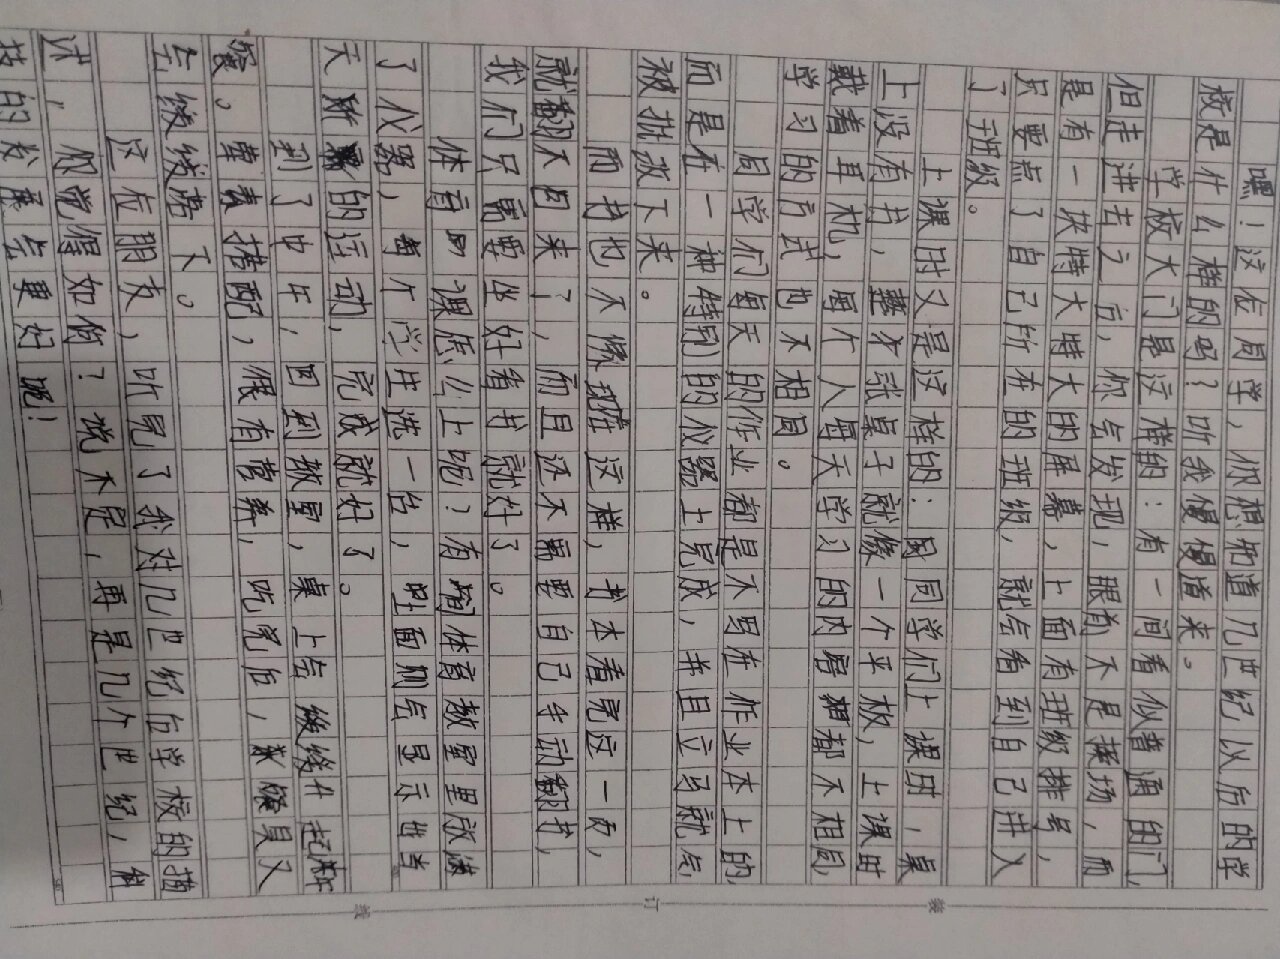 嘿！这位同学，你想知道几世纪以后的学
校是什么样的吗？听我慢慢道来。
学校大门是这样的：有一间看似普通的门，
但走进去之后，你会发现，眼前不是操场，而
是有一块特大特大的屏幕，上面有班级排号，
只要点了自己所在的班级，就会看到自己进入
了班级。
上课时又是这样的：同学们上课时，桌
上没有书，整张桌子就像一个平板，上课时
戴着耳机，每个人每天学习的内容都不相同，
学习的方式也不相同。
同学们每天的作业都是不写在作业本上的，
而是在一种特别的仪器上完成，并且立马就会
被批改下来。
而书也不像现在这样，书本看完这一面，
就翻不回来了，而且还不需要自己手动翻书，
我们只需要坐好看书就好了。
体育课怎么上呢？有体育教室里放满
了仪器，每个学生选一台，上面则会显示出当
天所的运动，完成就好了。
到了中午，回到教室，桌上会缓缓升起
餐。荤素搭配，很有营养，吃完后，餐具又
会缓缓落下。
这位朋友，听完了我对几世纪后学校的描
述，你觉得如何？说不定，再是几个世纪，科
技的发展会更好呢！
装
订
线